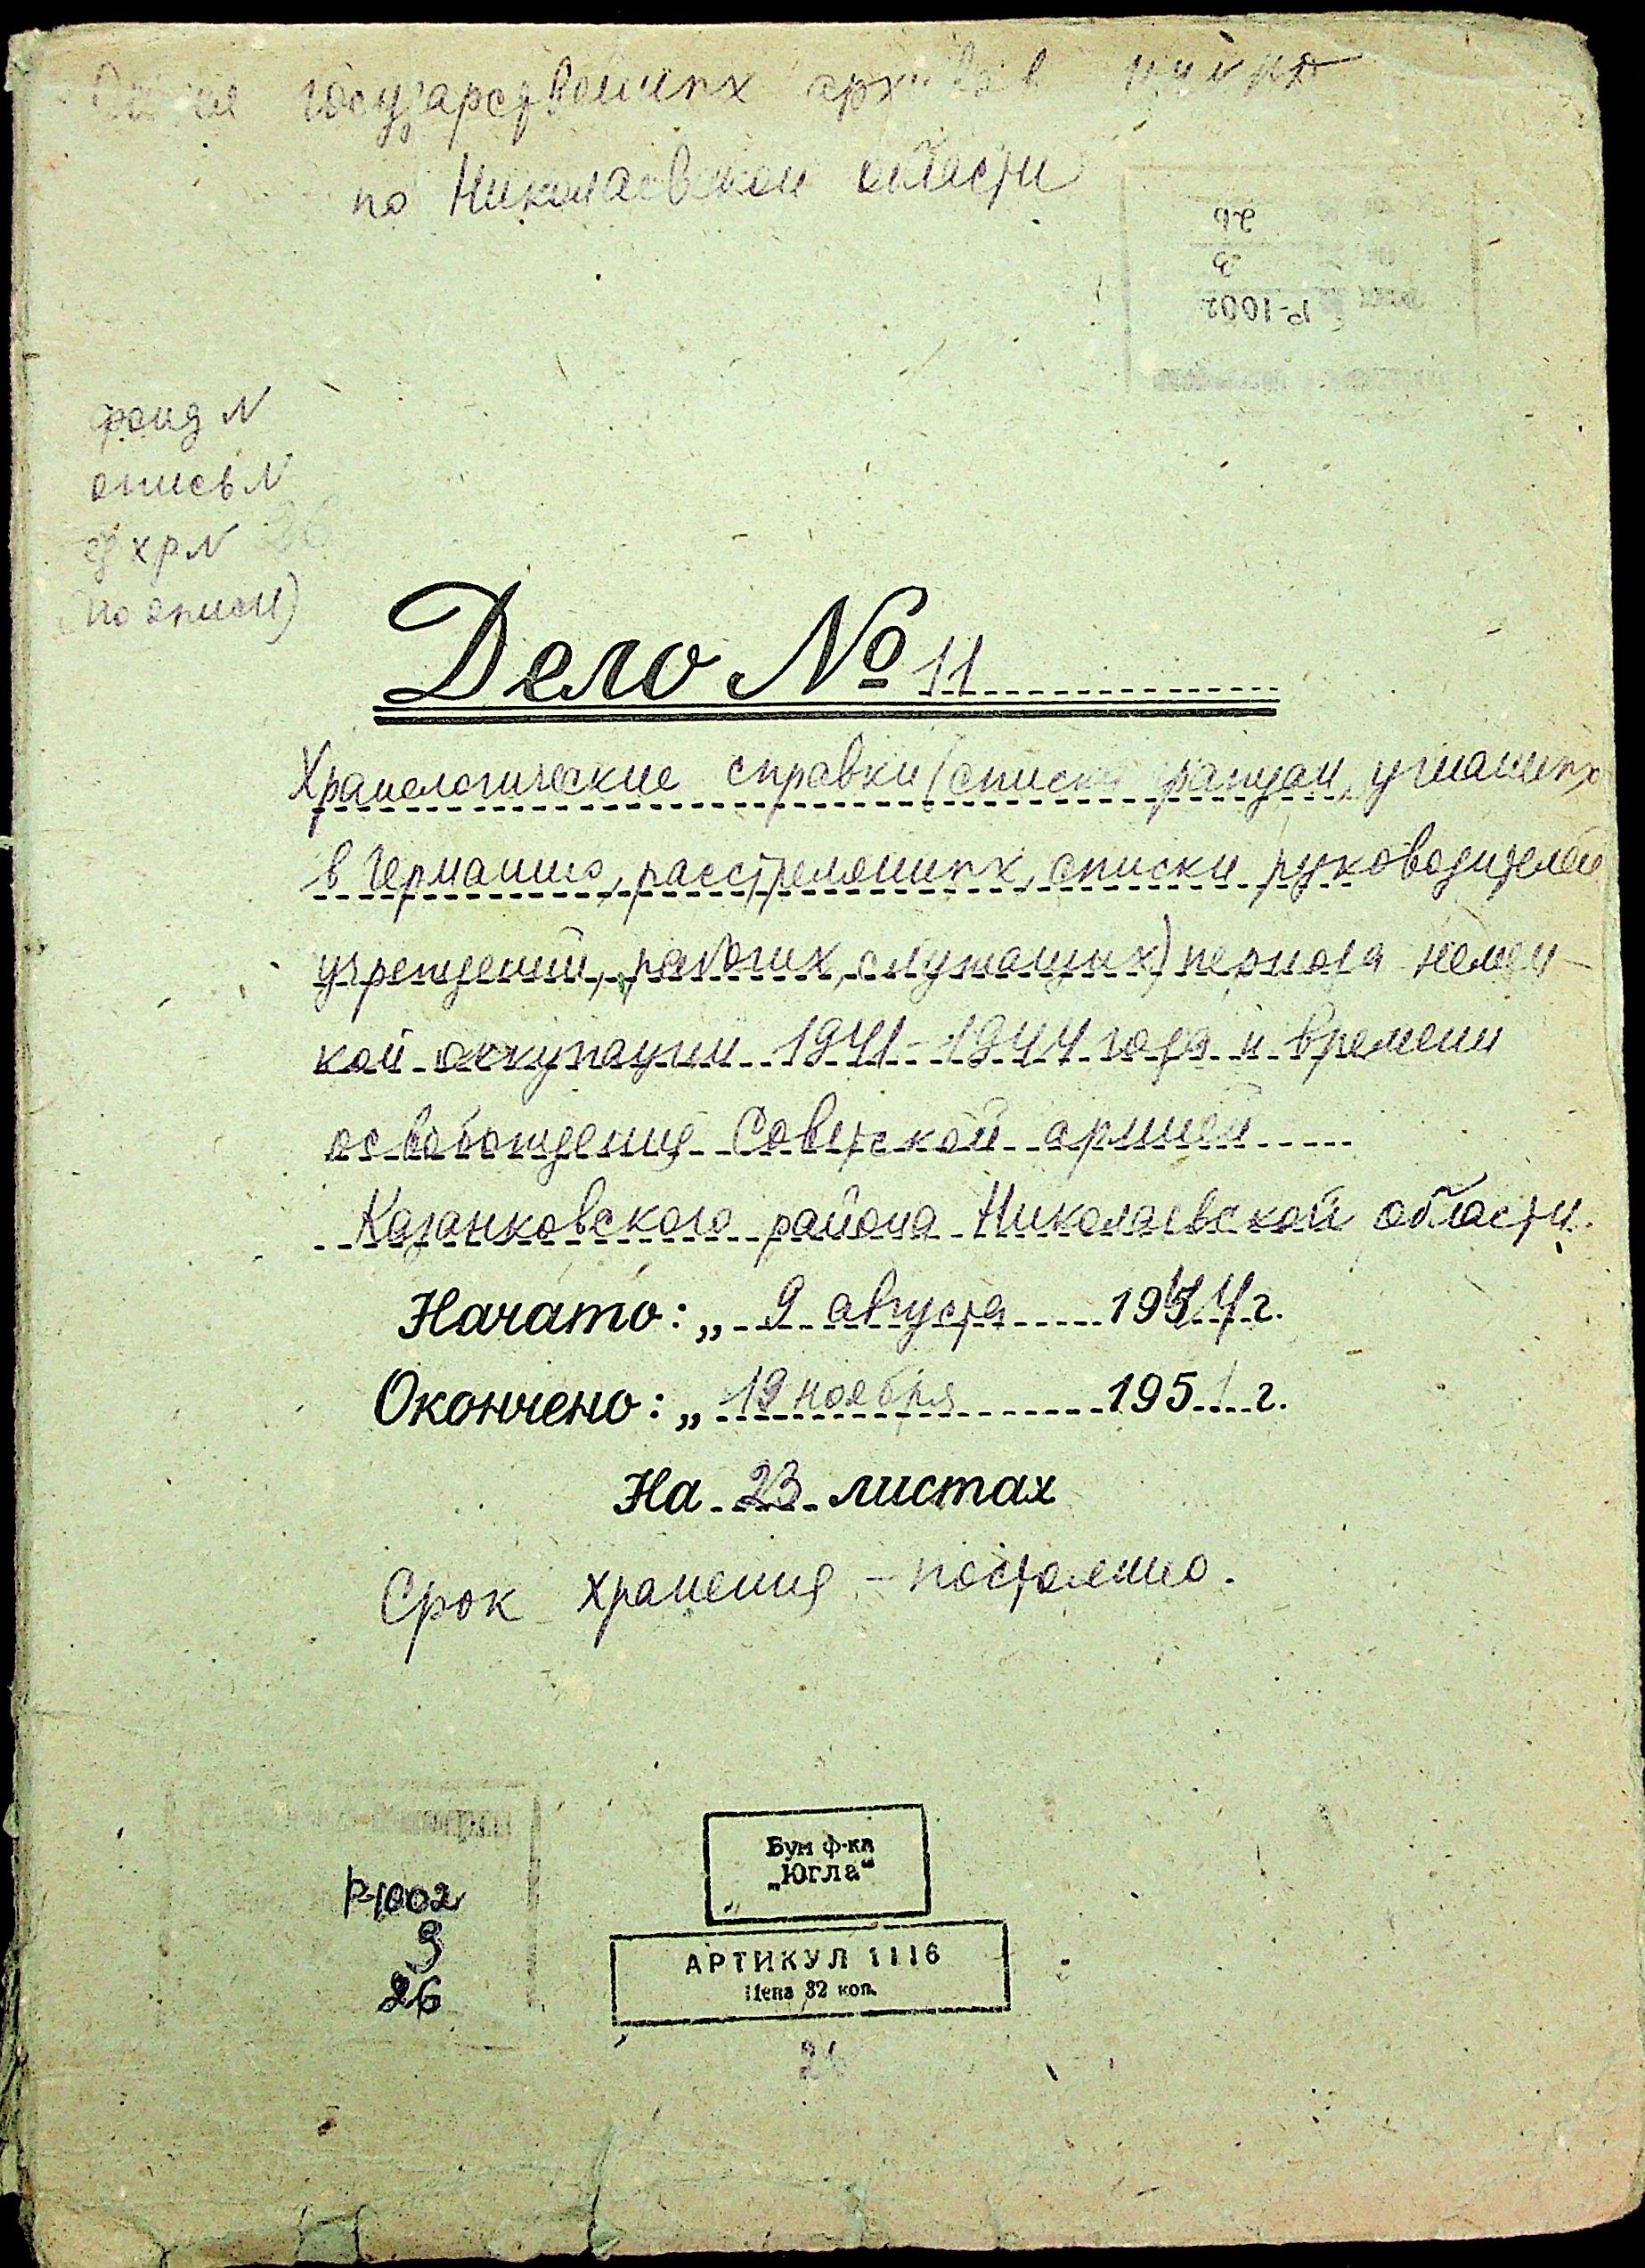 государственных архивов
по Николаевской области
26
9
Р-1002
фонд N
опись N
ед хр N 26
(по описи)
Дело № 11
Хранологические справки (списки граждан, угнанных
в Германию, расстрелянных, списки руководителей
учреждений, рабочих, служащих) периода немец-
кой оккупации 1941-1944 года и времени
освобождения Советской армией
Казанковского района Николаевской области.
Начато: „ 9 августа 1944 г.
Окончено: „ 19 ноября 1951 г.
На 23 листах
Срок хранения - постоянно.
Р-1002
9
26
Бум ф-ка
„Югла“
АРТИКУЛ 1116
Цена 32 коп.
26